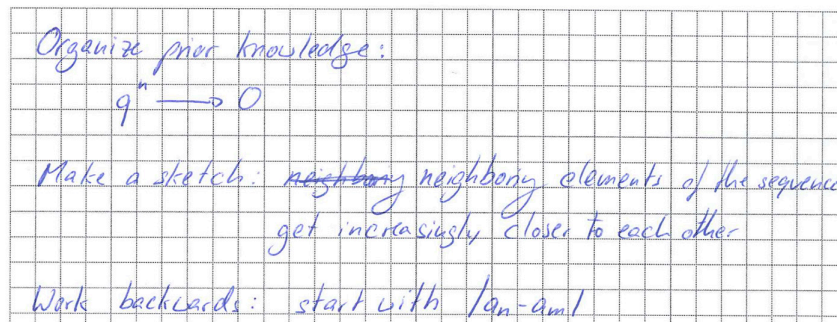 Organize prior knowledge:
qⁿ → 0
Make a sketch: neighbory neighbory elements of the sequence
get increasingly closer to each other
Work backwards: start with |an-am|